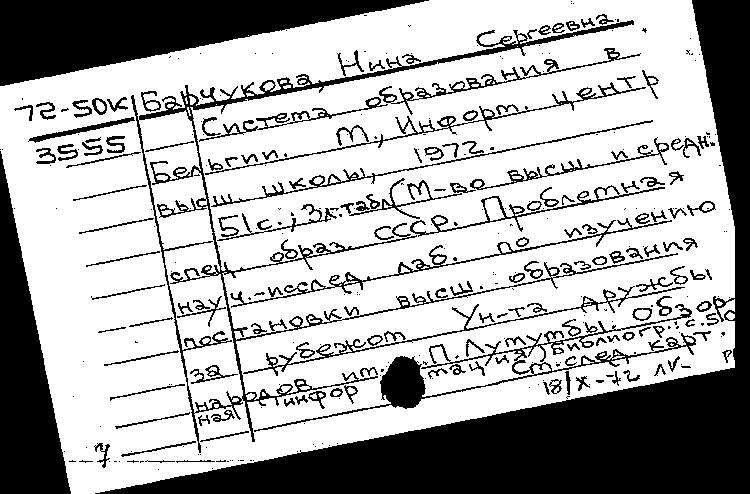 72-50К Барчукова, Нина Сергеевна.
3555 Система образования в
Бельгии. М., Информ. центр
высш. школы, 1972.
51с.; 3л.табл (М-во высш. и средн.
спец. образ. СССР. Проблемная
науч.-исслед. лаб. по изучению
постановки высш. образования
за рубежом Ун-та дружбы
народов им. П. Лумумбы. Обзор-
ная информация) Библиогр.: с.50
См.след. карт.
18/X-72